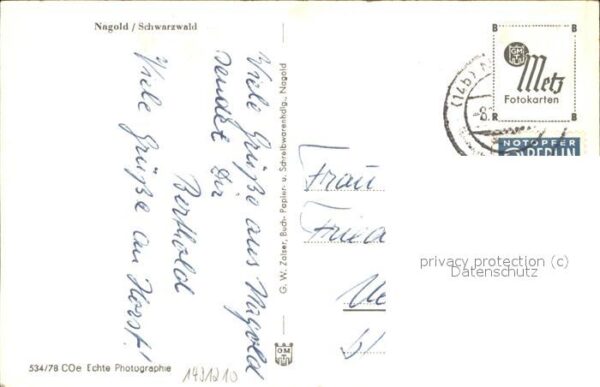 Nagold / Schwarzwald
Viele Grüße aus Nagold
sendet Dir
Berthold
Viele Grüße an Horst!
G. W. Zaiser, Buch- Papier- u. Schreibwarenhdlg., Nagold
534/78 COe Echte Photographie
1431210
B B
GM
Metz
Fotokarten
B R
(14b)
NOTOPFER
BERLIN
Frau
Frieda
privacy protection (c)
Datenschutz